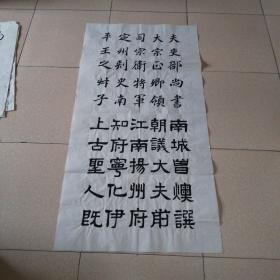 夫吏部尚書
大宗正卿領
司宗衛將軍
定州刺史南
平王之子
南城曽燠譔
朝議大夫前
江南揚州府
知府寧化伊
上古聖人既